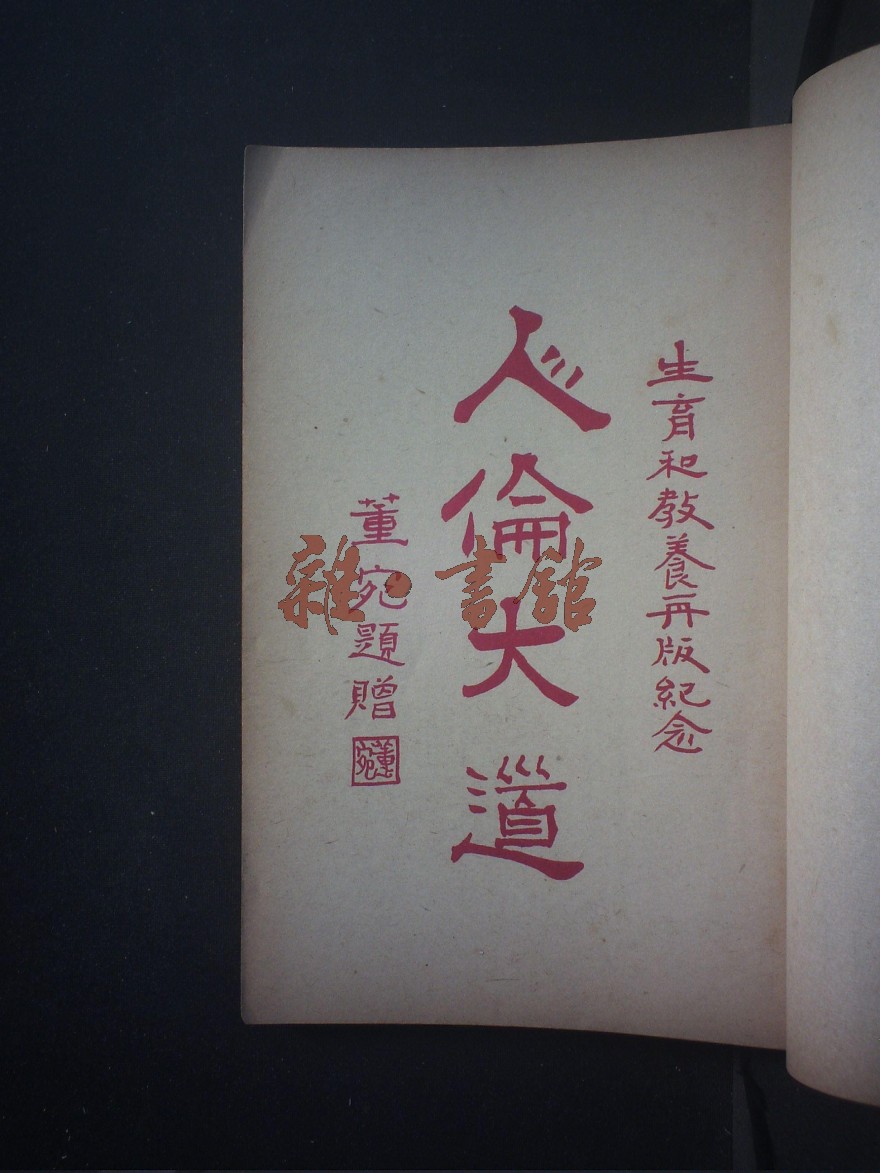 生育和教養再版紀念
人倫大道
董宛題贈
董宛
雜·書館